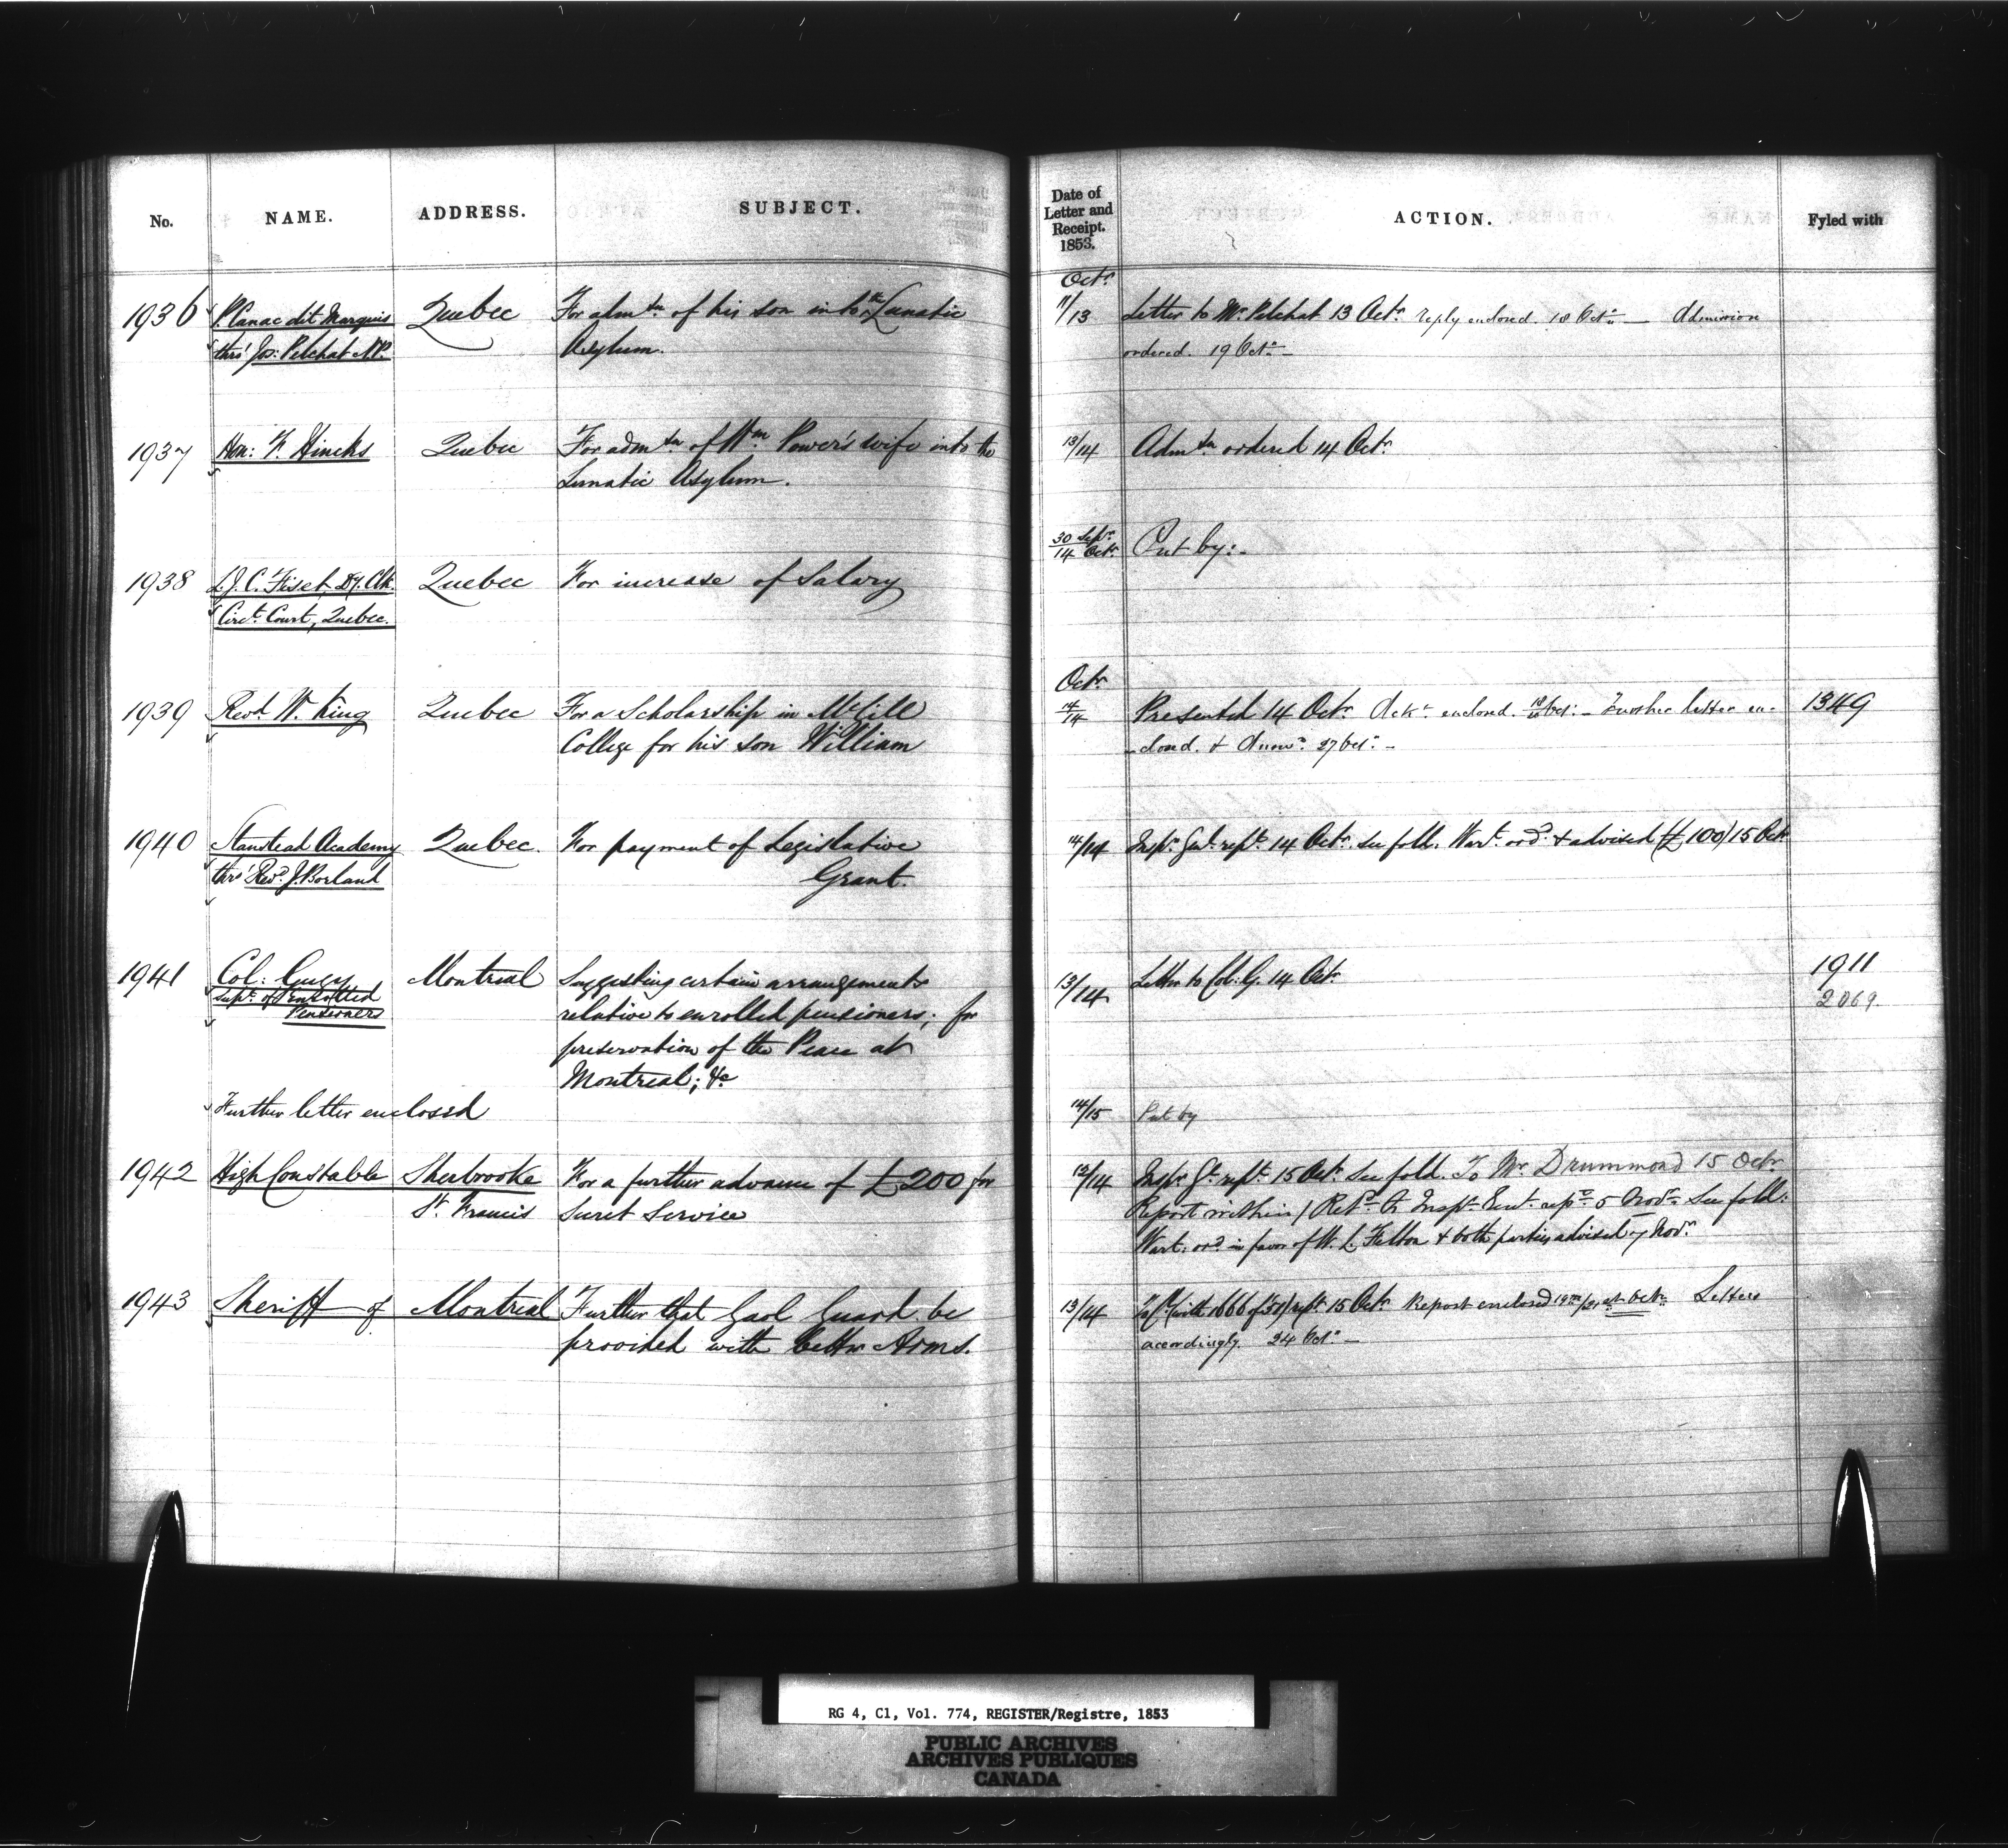 No. NAME. ADDRESS. SUBJECT.
Date of Letter and Receipt. 1853. ACTION. Fyled with
1936 P. Canac dit Marquis Quebec For admtn of his son into the Lunatic
thro' Jos: Pelchat N.P. Asylum.
Octr 11/13 Letter to Mr Pelchat 13 Octr reply enclosed. 18 Octr — Admission
ordered. 19 Octr —
1937 Hon: F. Hincks Quebec For admtn of Wm Power's wife into the
Lunatic Asylum.
13/14 Admtn ordered 14 Octr
1938 L.J.C. Fiset, Dy. Clk. Quebec For increase of Salary
Circt Court, Quebec.
30 Septr/14 Octr Put by:-
1939 Revd W. King Quebec For a Scholarship in McGill
College for his son William
Octr 14/14 Presented 14 Octr Ackt enclosed. Octr: - Further letter en-
-closed. & Answd 27 Octr - 1349
1940 Stanstead Academy Quebec. For payment of Legislative
thro' Revd J. Borland Grant.
14/14 Inspr Genl rept 14 Octr see fold. Wart ord & advised (£100) 15 Octr
1941 Col: Gugy Montreal Suggesting certain arrangements
Supt of Enrolled relative to enrolled pensioners; for
Pensioners preservation of the Peace at
Montreal; &c
13/14 Letter to Col: G. 14 Octr 1911
2069.
Further letter enclosed 14/15 Put by
1942 High Constable Sherbrooke For a further advance of £200 for
St Francis Secret Service
12/14 Inspr Gl rept 15 Octr See fold. To Mr Drummond 15 Octr
Report within / Retd to Inspr Genl rept 5 Novr See fold:
Wart: ord in favor of W. L. Felton & both parties advised 7 Novr
1943 Sheriff of Montreal Further that Gaol Guard be
provided with better Arms.
13/14 (with 1666 of 51) rept 15 Octr Report enclosed 19th/21st Octr Letters
accordingly. 24 Octr —
RG 4, C1, Vol. 774, REGISTER/Registre, 1853
PUBLIC ARCHIVES
ARCHIVES PUBLIQUES
CANADA